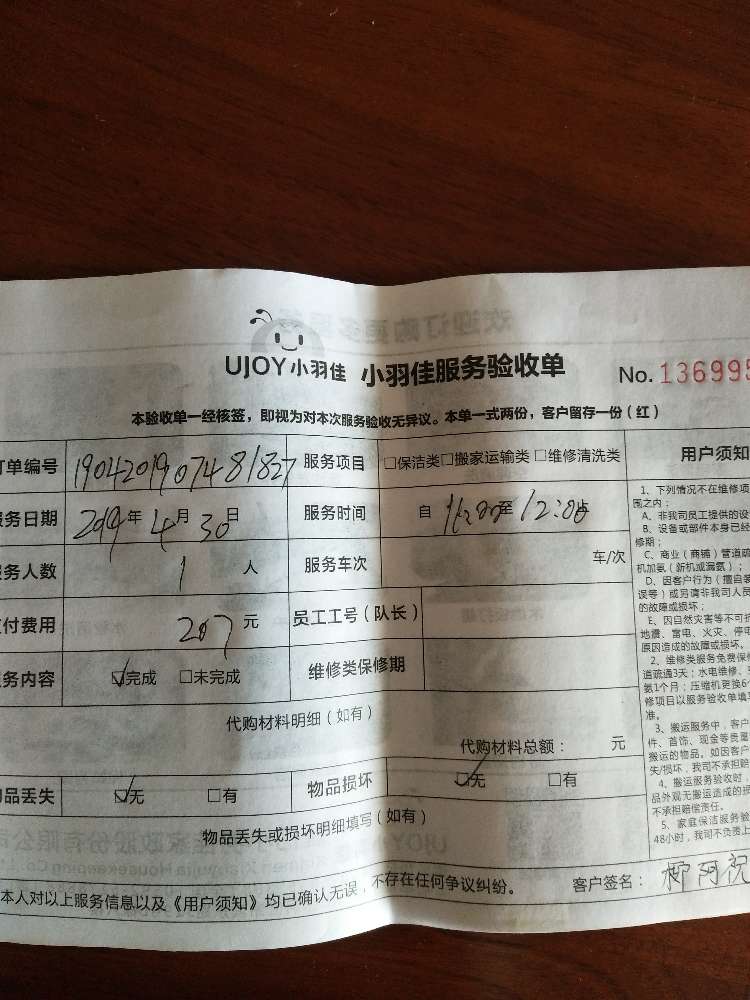 UJOY小羽佳 小羽佳服务验收单 No.136995
本验收单一经核签，即视为对本次服务验收无异议。本单一式两份，客户留存一份（红）
订单编号 1904201907481827 服务项目 □保洁类□搬家运输类□维修清洗类 用户须知
服务日期 2019年4月30日 服务时间 自 至12:00
服务人数 1 人 服务车次 车/次
支付费用 207 元 员工工号（队长）
服务内容 ☑完成 □未完成 维修类保修期
代购材料明细（如有）
代购材料总额： 元
物品丢失 ☑无 □有 物品损坏 ☑无 □有
物品丢失或损坏明细填写（如有）
本人对以上服务信息以及《用户须知》均已确认无误，不存在任何争议纠纷。 客户签名：
1、下列情况不在维修项
围之内：
A、非我司员工提供的设
B、设备或部件本身已经
修期；
C、商业（商铺）管道疏
机加氨（新机或漏氨）；
D、因客户行为（擅自
误等）或另请非我司人员
的故障或损坏；
E、因自然灾害等不可抗
地震、雷电、火灾、停电
原因造成的故障或损坏。
2、维修类服务免费保
道疏通3天；水电维修、
氨1个月；压缩机更换6
修项目以服务验收单填
准。
3、搬运服务中，客户
件、首饰、现金等贵重
搬运的物品，如因客户
失/损坏，我司不承担赔
4、搬运服务验收时，
品外观无搬运造成的损
不承担赔偿责任。
5、家庭保洁服务验
48小时，我司不负责上